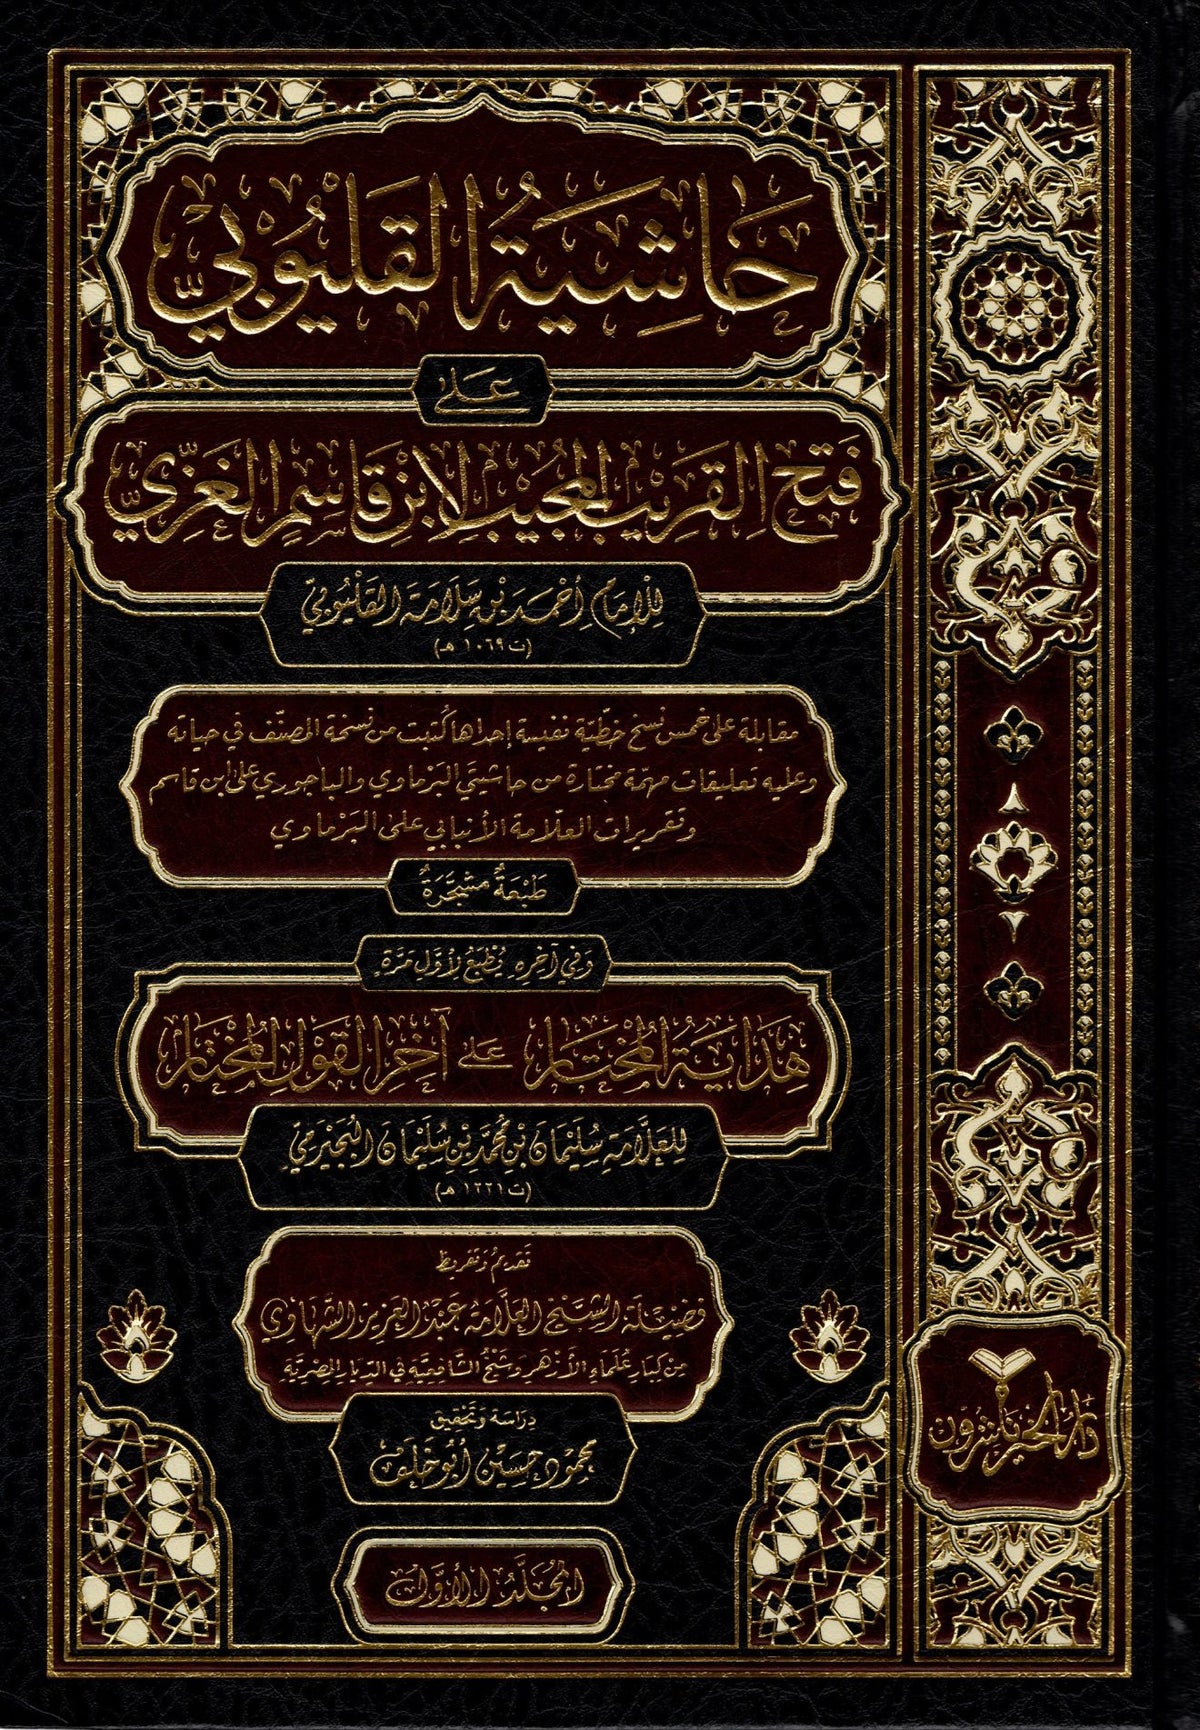 حَاشِيَةُ القَلْيُوبِيِّ
عَلَى
فَتْحِ القَرِيبِ المُجِيبِ لِابْنِ قَاسِمٍ الغَزِّيِّ
لِلْإِمَامِ أَحْمَدَ بْنِ سَلَامَةَ القَلْيُوبِيِّ
(ت ١٠٦٩ هـ)
مقابلة على خمس نسخ خطّيّة نفيسة إحداها كُتبت من نسخة المصنّف في حياته
وعليه تعليقات مهمّة مختارة من حاشيتَي البَرماوي والباجوري على ابن قاسم
وتقريرات العلّامة الأنبابي على البَرْماوي
طَبْعَةٌ مُشَجَّرَةٌ
وَفِي آخِرِهِ يُطْبَعُ لِأَوَّلِ مَرَّةٍ
هِدَايَةُ المُخْتَارِ عَلَى آخِرِ القَوْلِ المُخْتَارِ
لِلعَلَّامَةِ سُلَيْمَانَ بْنِ مُحَمَّدِ بْنِ سُلَيْمَانَ البُجَيْرِمِيِّ
(ت ١٢٢١ هـ)
تَقْدِيمُ وَتَقْرِيظُ
فَضِيلَةِ الشَّيْخِ العَلَّامَةِ عَبْدِ العَزِيزِ الشَّهَاوِي
مِنْ كِبَارِ عُلَمَاءِ الأَزْهَرِ وَشَيْخِ الشَّافِعِيَّةِ فِي الدِّيَارِ المِصْرِيَّةِ
دِرَاسَة وَتَحْقِيق
مَحْمُود حُسَيْن أَبُو خَلَف
المُجَلَّدُ الأَوَّلُ
دَارُ الخَيْرِ نَاشِرُونَ